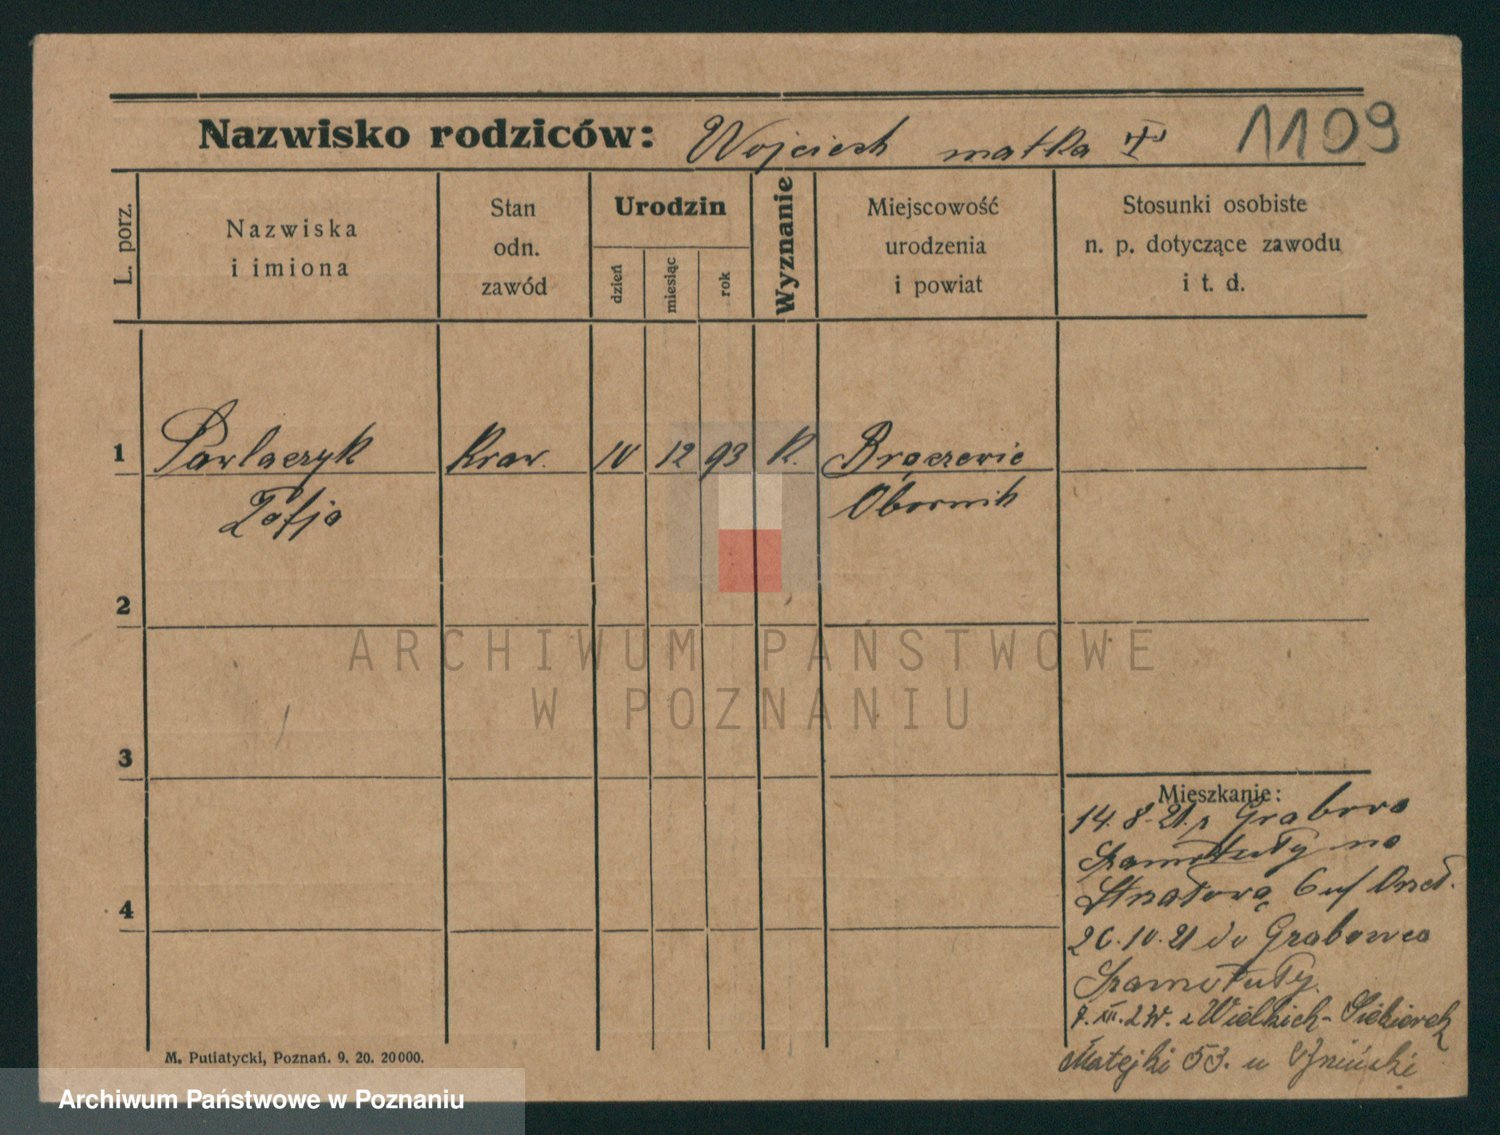 Nazwisko rodziców: Wojciech matka 1109
L. porz.
Nazwiska
i imiona
Stan
odn.
zawód
Urodzin
dzień
miesiąc
rok
Wyznanie
Miejscowość
urodzenia
i powiat
Stosunki osobiste
n. p. dotyczące zawodu
i t. d.
1 Pawlaczyk Kraw. 10 12 93 K.
Zofja Obornik
2
3
4
Mieszkanie:
14. 8. 21. z Grabowo
Szamotuły na
6
.10.21 do Grabowca
Szamotuły.
Wielkich-
Matejki 53. u
M. Putiatycki, Poznań. 9. 20. 20000.
ARCHIWUM PAŃSTWOWE
W POZNANIU
Archiwum Państwowe w Poznaniu